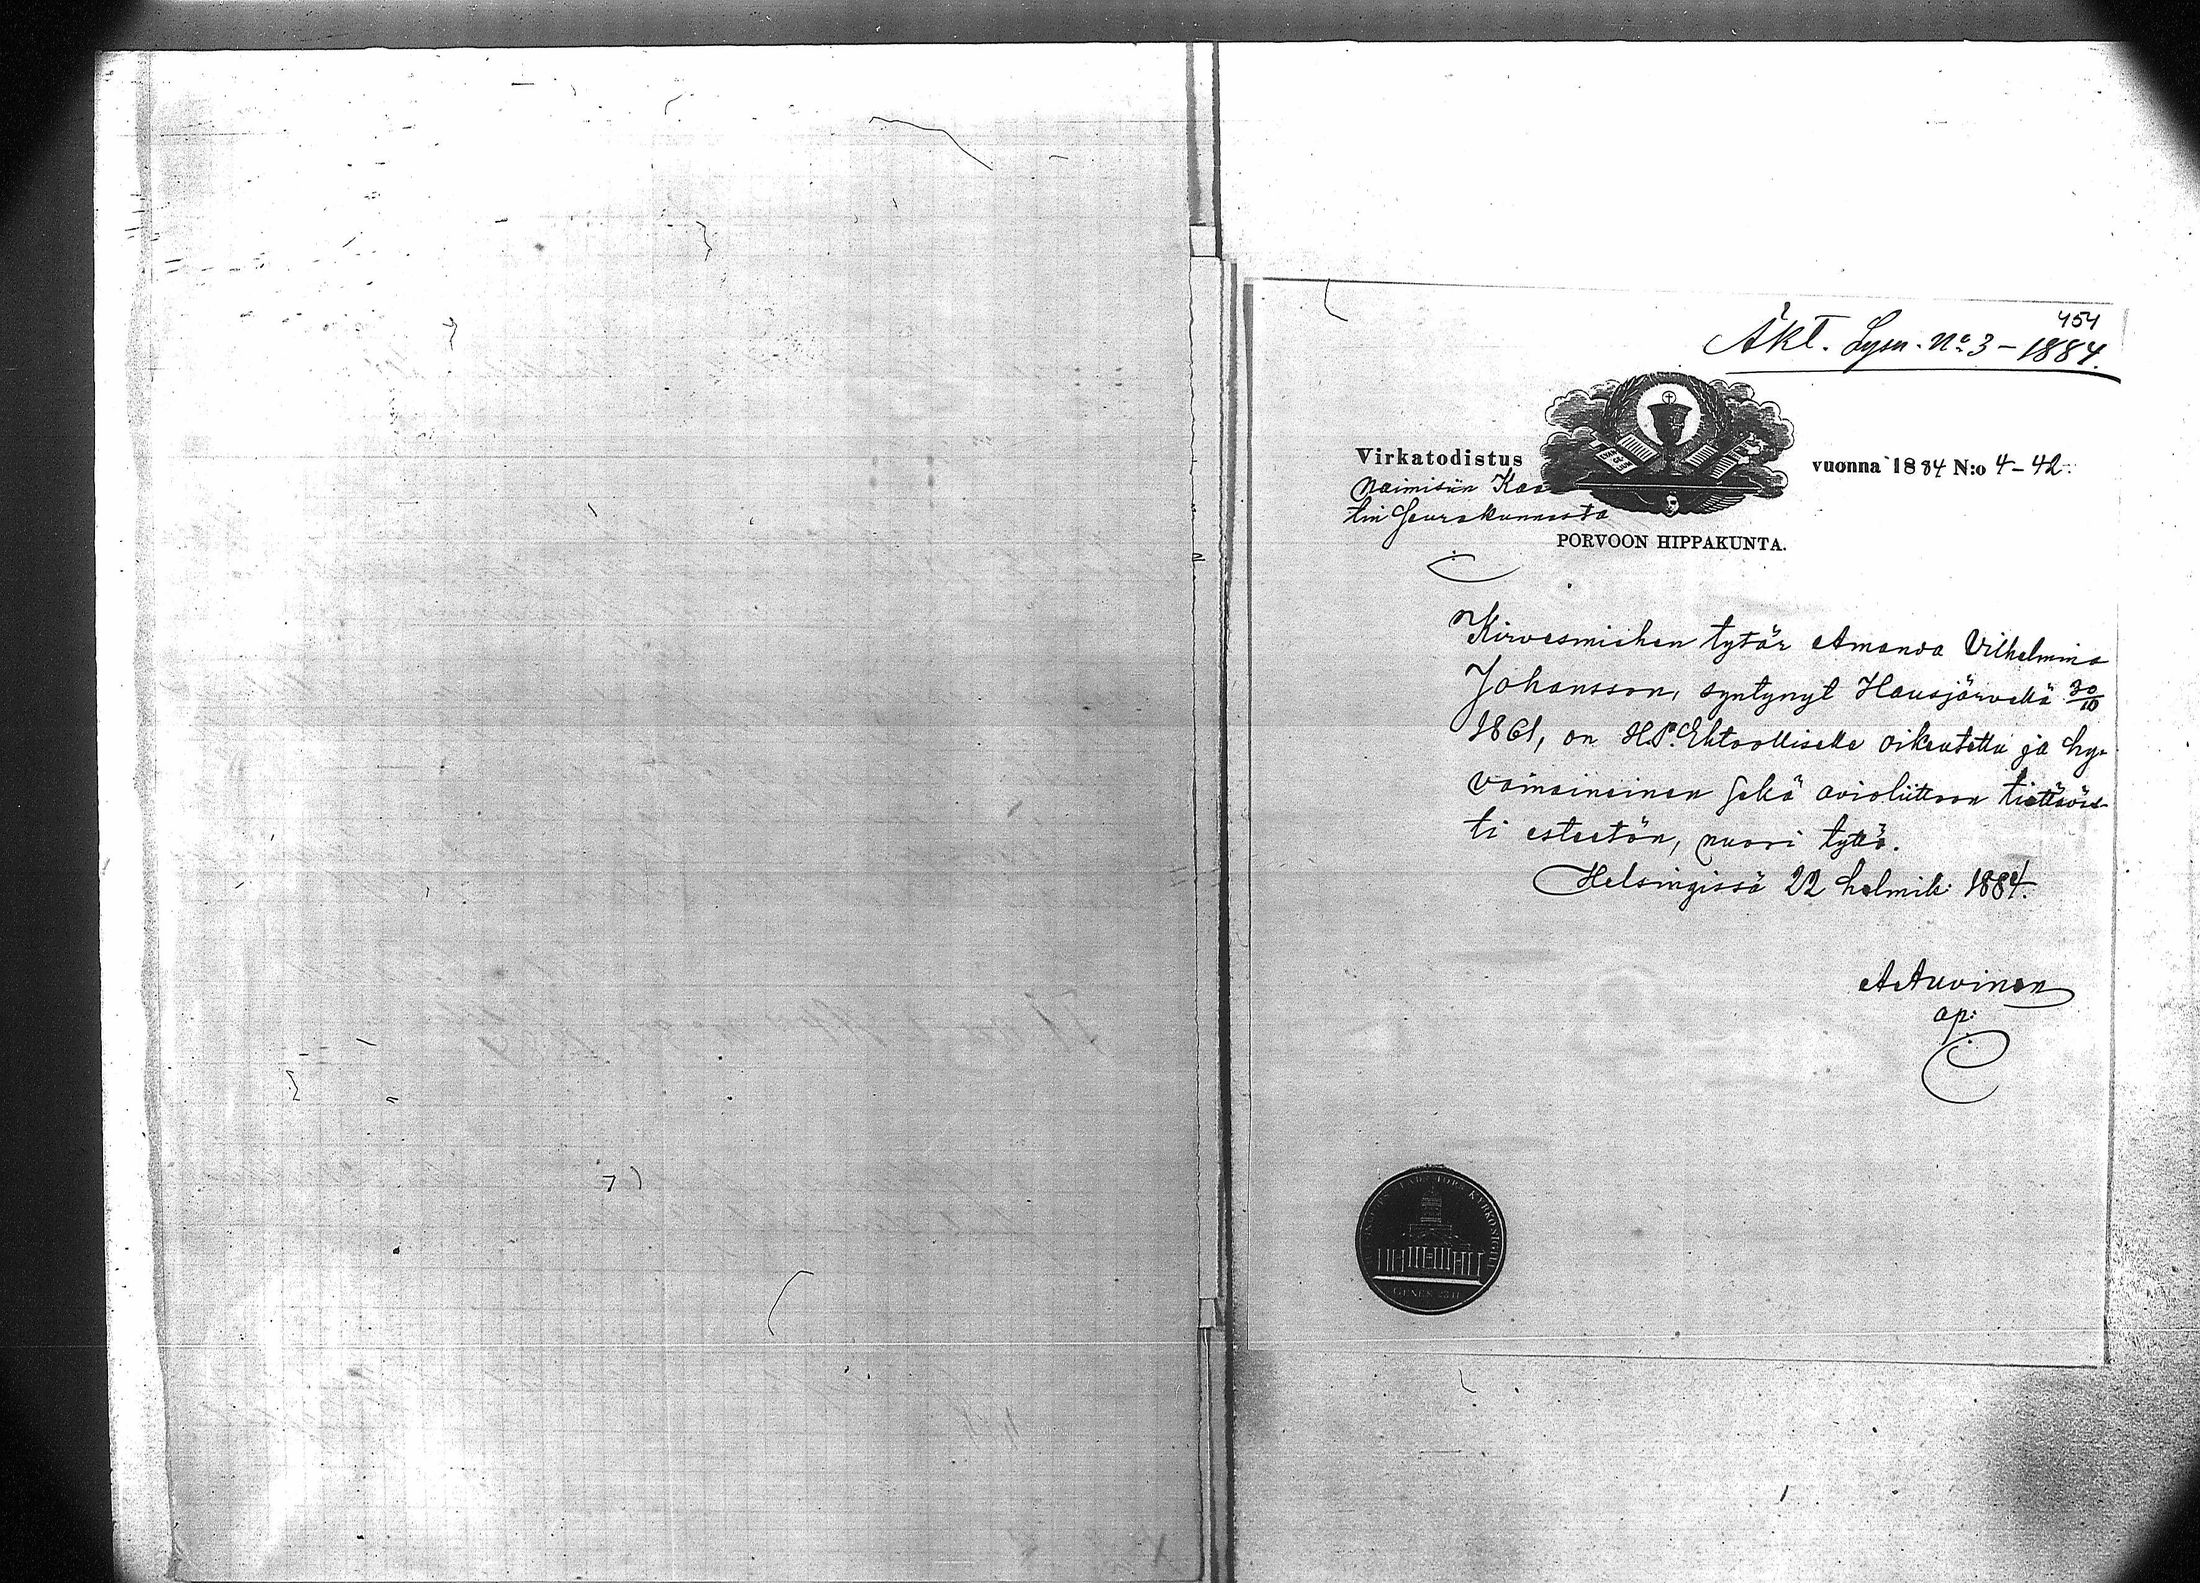 454
Äkt. Lysn. No 3 - 1884.
Virkatodistus
vuonna 1884 N:o 4-42.
Naimisiin
tin Seurakunnasta
PORVOON HIPPAKUNTA.
Kirvesmiehen tytär Amanda Vilhelmina
Johansson, syntynyt Hausjärvellä 30/10
1861, on H.P. Ehtoolliselle oikeutettu ja hy-
vämaineinen sekä avioliittoon tiettäväs-
ti esteetön, nuori tyttö.
Helsingissä 22 helmik: 1884.
A Auvinen
ap:
KYRKOSIGILL
GENES 28